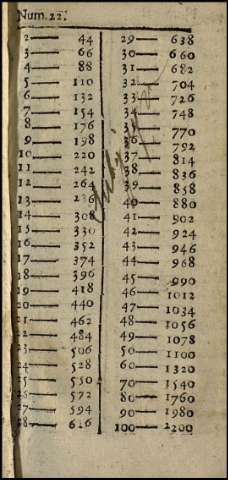 Num. 22.
2— 44
3— 66
4— 88
5— 110
6— 132
7— 154
8— 176
9— 198
10— 220
11— 242
12— 264
13— 286
14— 308
15— 330
16— 352
17— 374
18— 396
19— 418
20— 440
21— 462
22— 484
23— 506
24— 528
25— 550
26— 572
27— 594
28— 616
29— 638
30— 660
31— 682
32— 704
33— 726
34— 748
35— 770
36— 792
37— 814
38— 836
39— 858
40— 880
41— 902
42— 924
43— 946
44— 968
45— 990
46— 1012
47— 1034
48— 1056
49— 1078
50— 1100
60— 1320
70— 1540
80— 1760
90— 1980
100— 2200